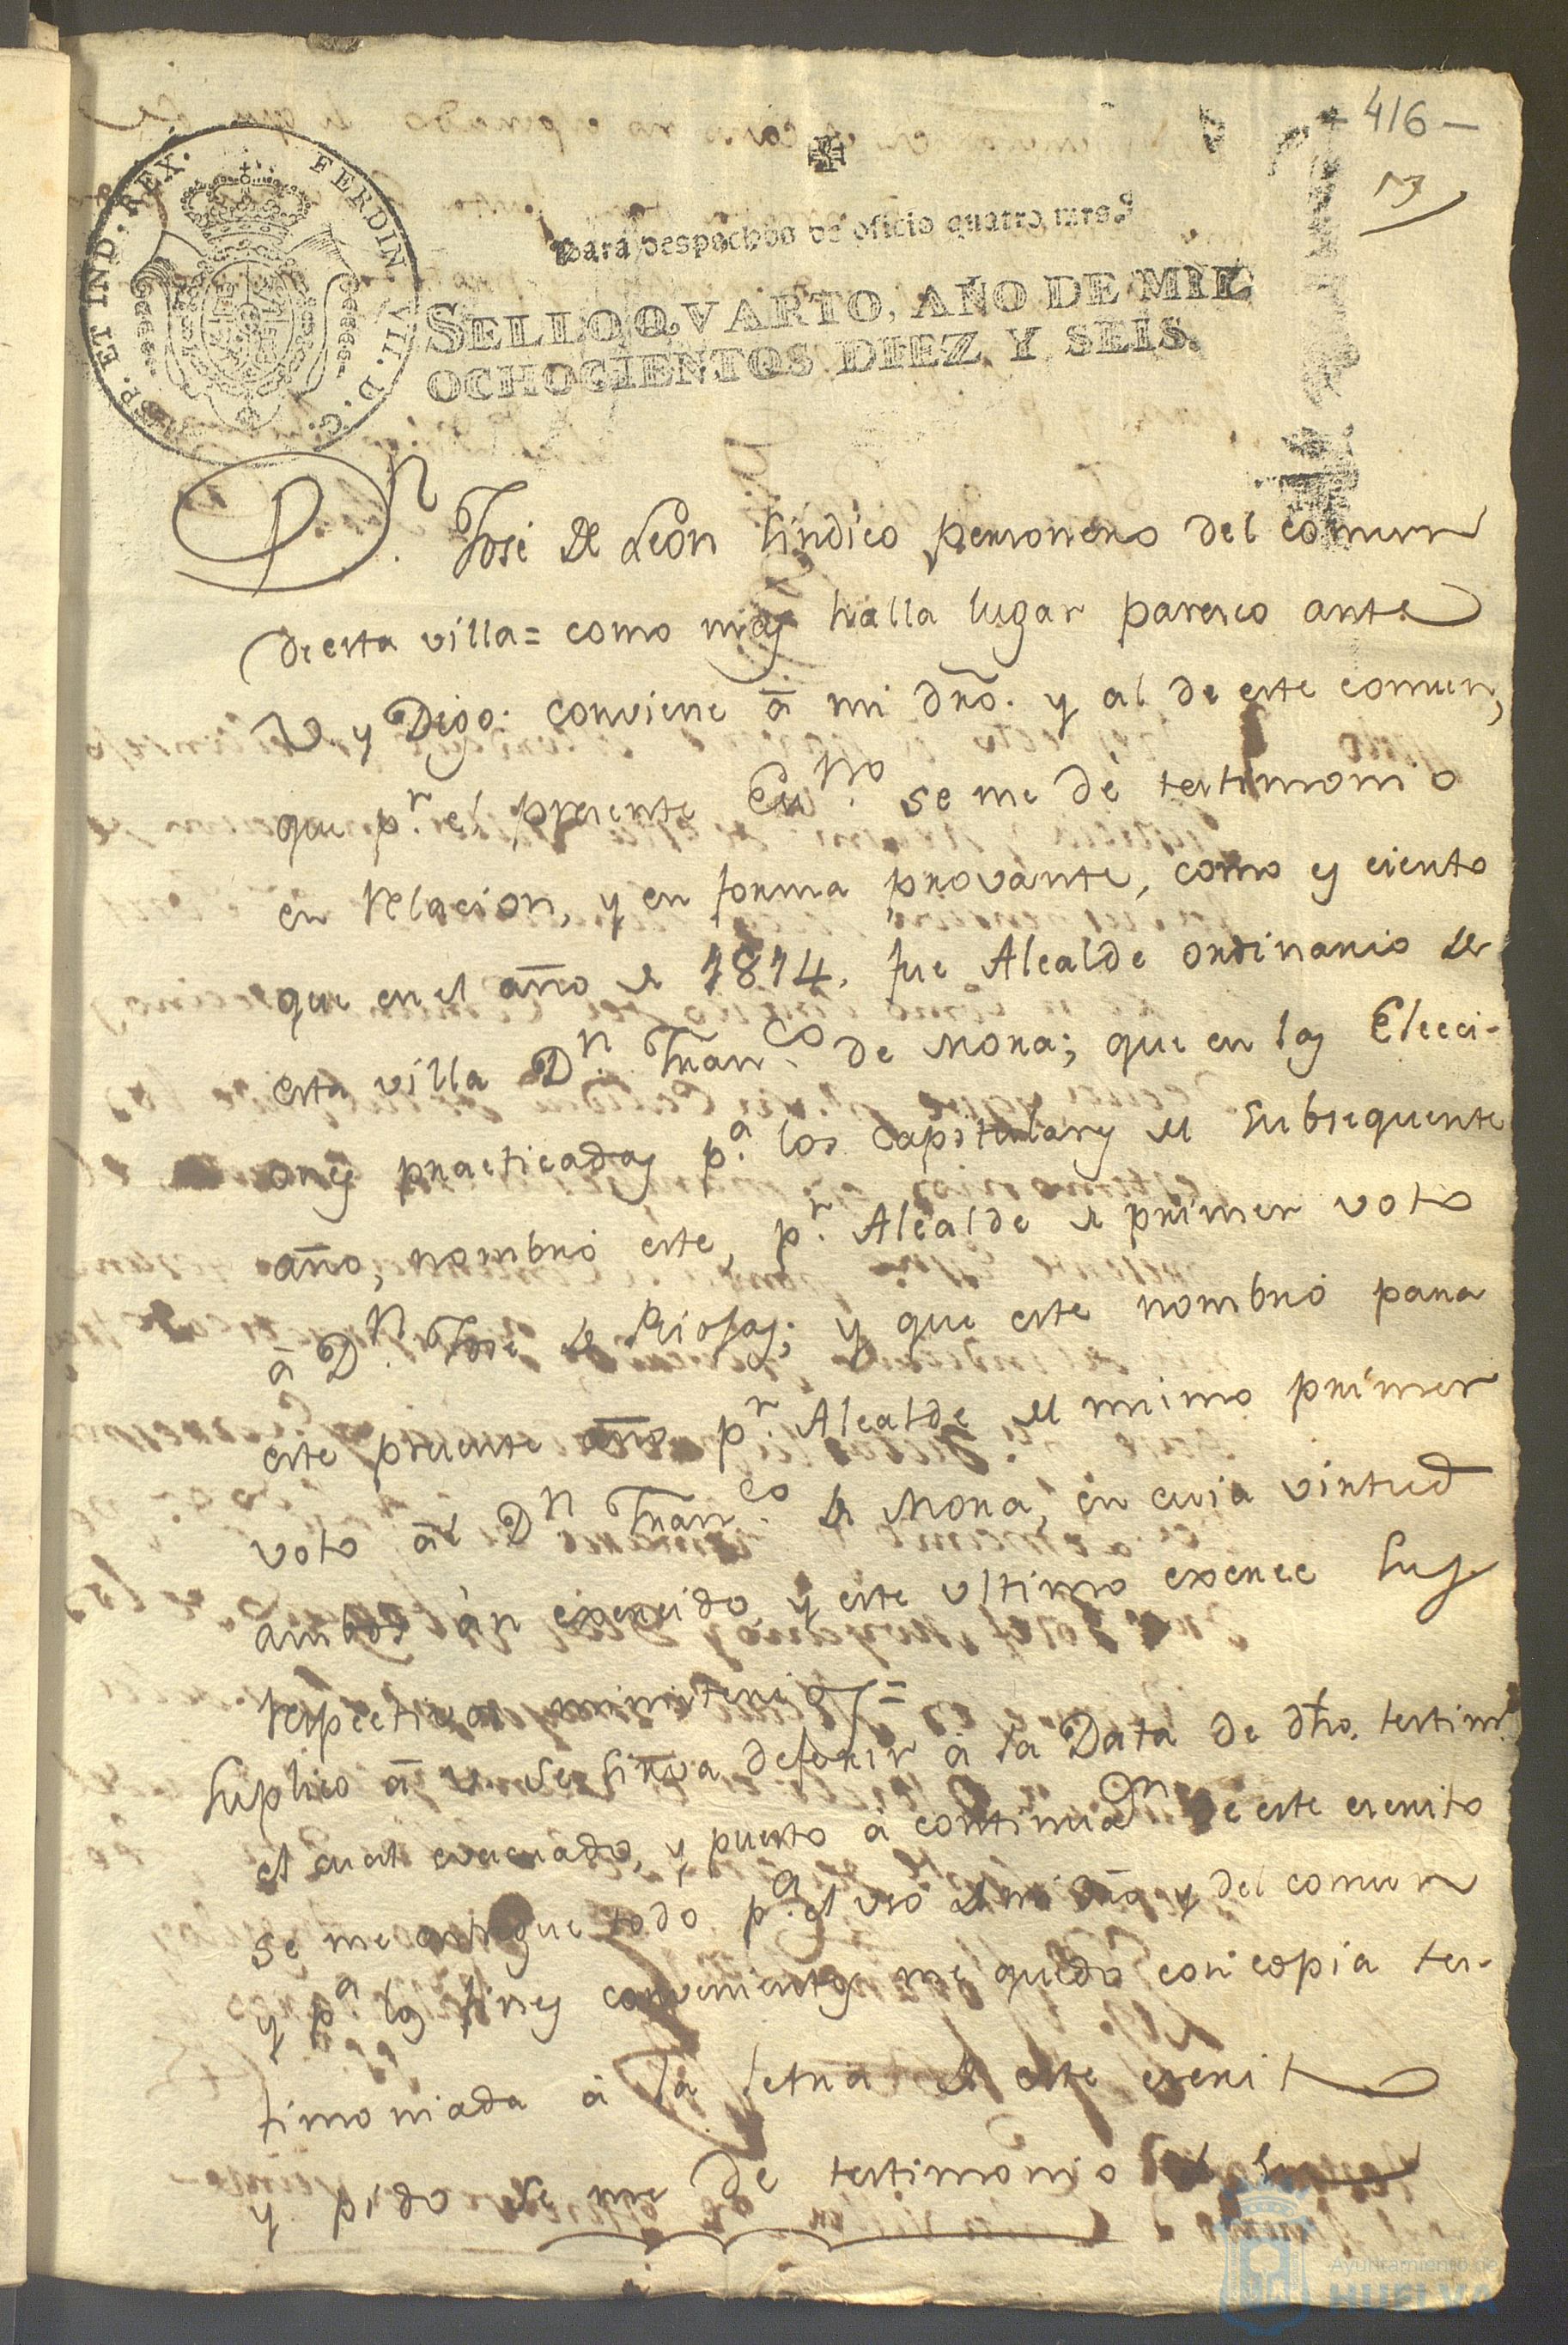 416-
13
HISP. ET IND. REX. FERDIN. VII. D. G.
Para despachos de oficio quatro mrs.
SELLO QVARTO, AÑO DE MIL
OCHOCIENTOS DIEZ Y SEIS.
Dn. José de Leon Sindico personero del comun
de esta villa= como mas halla lugar paresco ante
V y Digo: conviene á mi dro. y al de este comun,
que pr. el presente Esno. se me dé testimonio
en relacion, y en forma provante, como es cierto
que en el año de 1814. fue Alcalde ordinario de
esta villa Dn. Franco. de Mora; que en las Elecci-
ones practicadas pa. los capitulares del subsequente
año, nombró este, pr. Alcalde de primer voto
á Dn. Jose de Riojas; y que este nombró para
este presente año pr. Alcalde del mismo primer
voto ál Dn Franco. de Mora, en cuia virtud
ambos án exercido y este ultimo exerce sus
respectivos ministerios=
Suplico á V. se sirva deferir á la Data de dho. testimo.
el cual evacuado, y puesto á continuaon de este escrito
se me entregue todo pa. el uso de mi dro y del comun
y pa los fines convenientes me quedo con copia tes-
timoniada á la letra de este escrito
y pido se me de testimonio de su
Ayuntamiento de
HUELVA